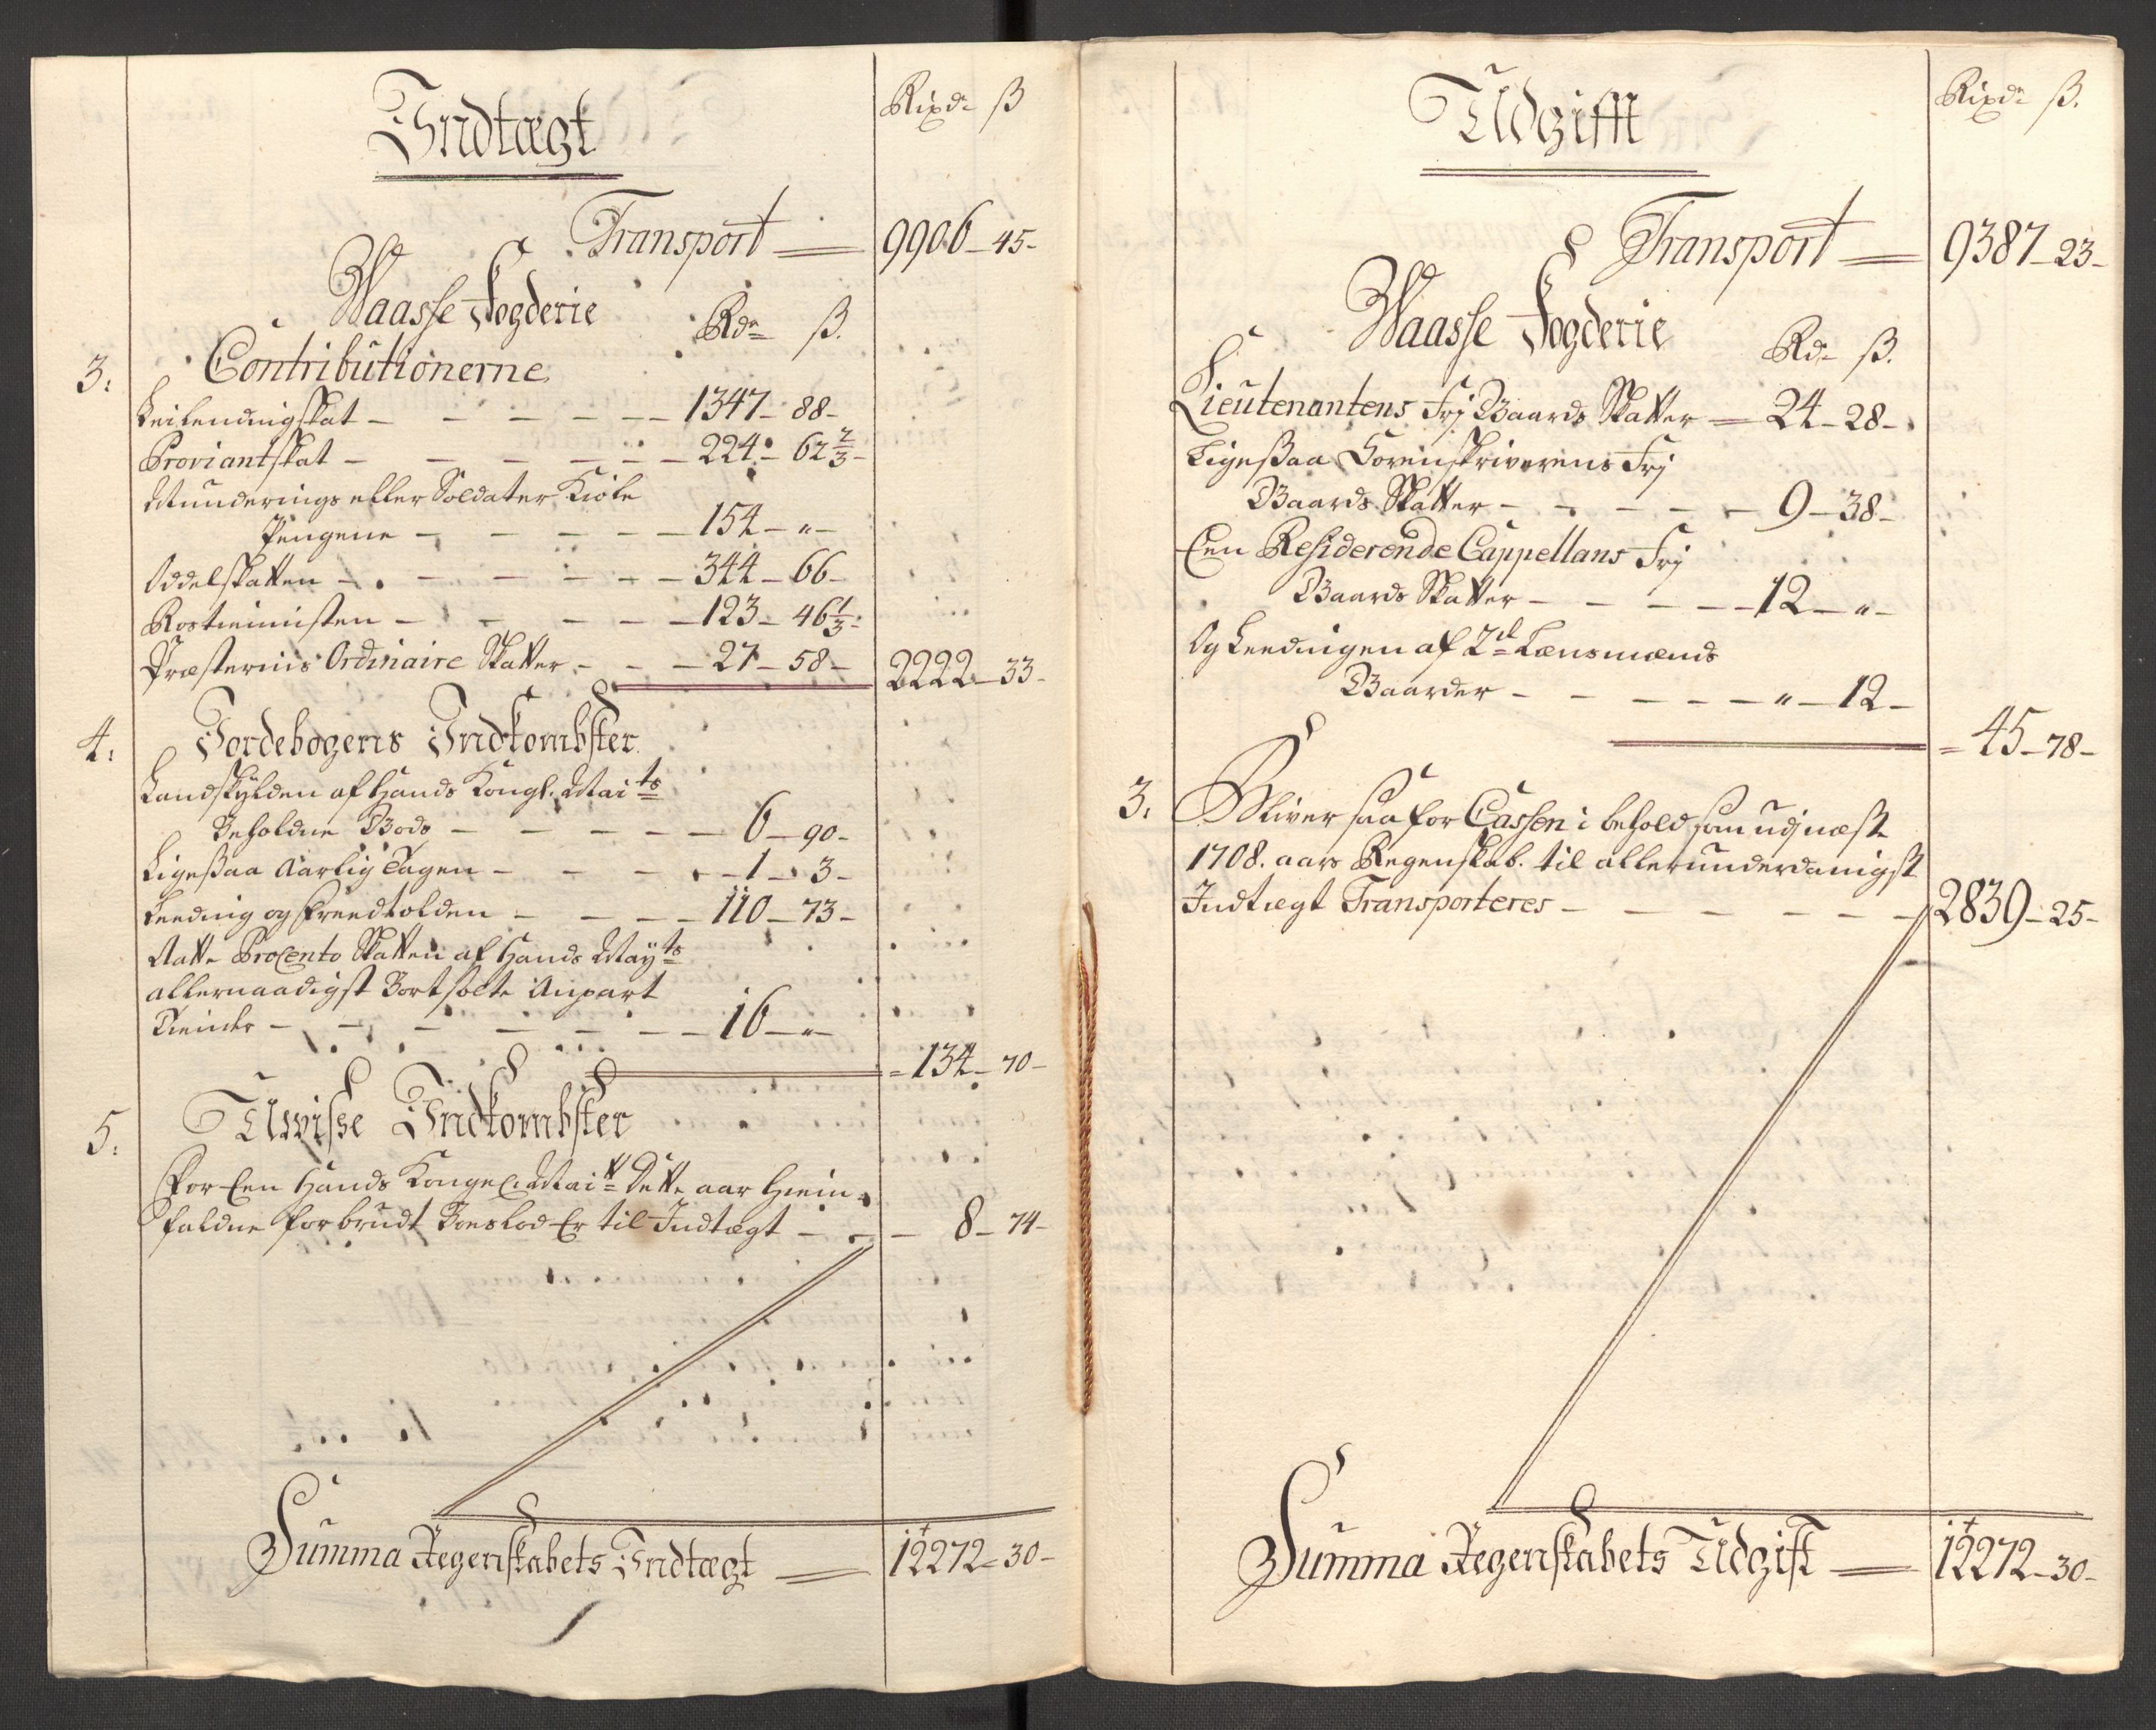 Indtægt
Rixdr ß
Transport 9906 - 45 -
Waasse Fogderie
Rdr ß.
3. Contributionerne
Leilendingskat - - - - - 1347 - 88 -
Proviantskat - - - - - 224 - 62 2/3 -
Munderings eller Soldater Kiole
Pengene - - - - - 154 - " -
Oddelskatten - - - - - 344 - 66 -
Rostienisten - - - - - 123 - 46 1/3 -
Præsternis Ordinaire Skatter - - - 27 - 58 - 2222 - 33 -
4. Jordebogens Indkombster
Landskylden af Hands Kongl. Maits
Beholdne Gods - - - - - 6 - 90 -
Ligesaa Aarlig Tagen - - - - 1 - 3 -
Leeding og Preedtolden - - - - 110 - 73 -
Aatte ProCento Skatten af Hands Mayts
allernaadigst Bortsolte Anpart
Tiender - - - - - 16 - " -
= 134 - 70 -
5. Uwisse Indkombster
For Een Hands Kongel. Maitt Dette aar hiem-
faldne forbrudt Boeslod Er til Indtægt - - - 8 - 74 -
Summa Regenskabets Indtægt 12272 - 30 -
Udgifft
Rixdr ß.
Transport 9387 - 23 -
Waasse Fogderie
Rdr ß.
Lieutenantens Frj Gaards Skatter - 24 - 28 -
Ligesaa Sorenskriverens Frj
Gaards Skatter - - - - - 9 - 38 -
Een Residerende Cappellans Frj
Gaards Skatter - - - - - 12 - " -
Og Leedingen af 2de Lænsmænds
Gaarder - - - - - " - 12 -
= 45 - 78 -
3. Bliver saa for Cassen i behold som udj næst
1708. aars Regenskab. til allerunderdanigst
Indtægt Transporteres - - - - - 2839 - 25 -
Summa Regenskabets Udgift 12272 - 30 -